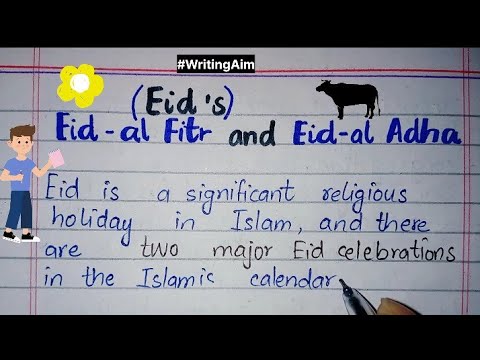 #WritingAim
(Eid's)
Eid-al Fitr and Eid-al Adha
Eid is a significant religious
holiday in Islam, and there
are two major Eid celebrations
in the Islamic calendar